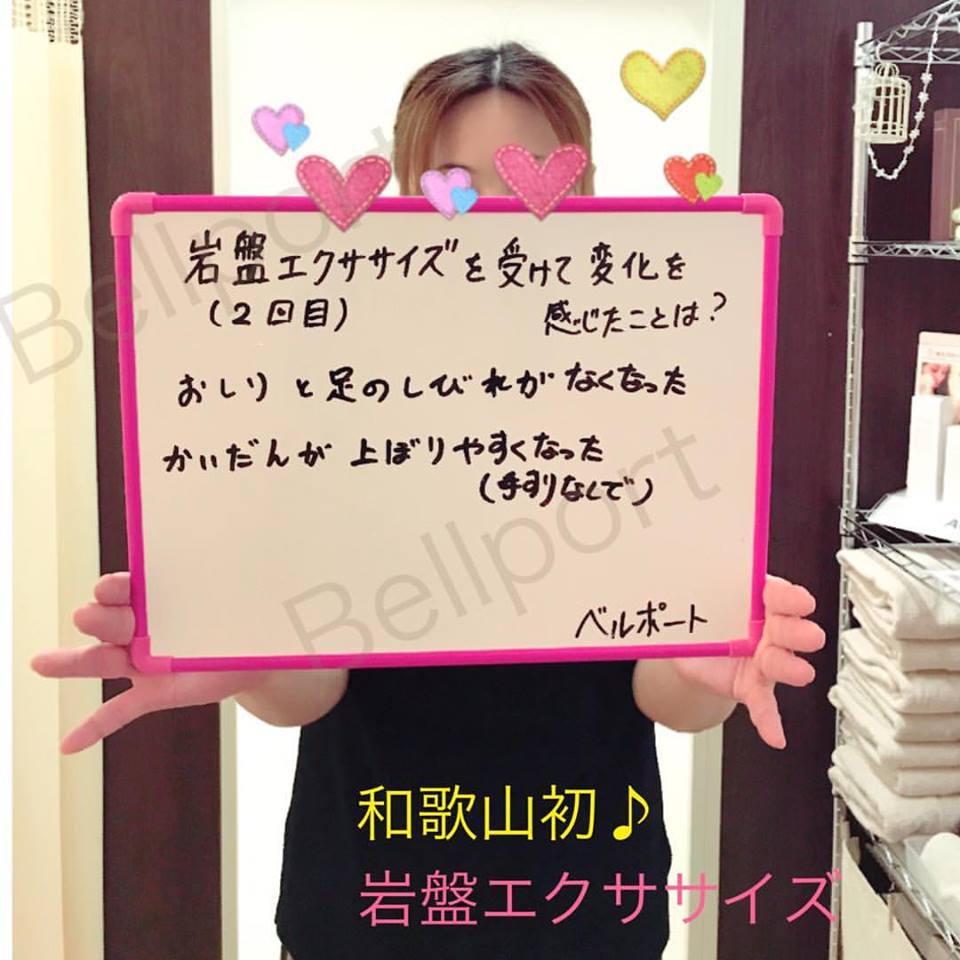 岩盤エクササイズを受けて変化を
(2回目) 感じたことは?
おしりと足のしびれがなくなった
かいだんが上ぼりやすくなった
(手すりなしで)
ベルポート
和歌山初♪
岩盤エクササイズ
Bellport
Bellport